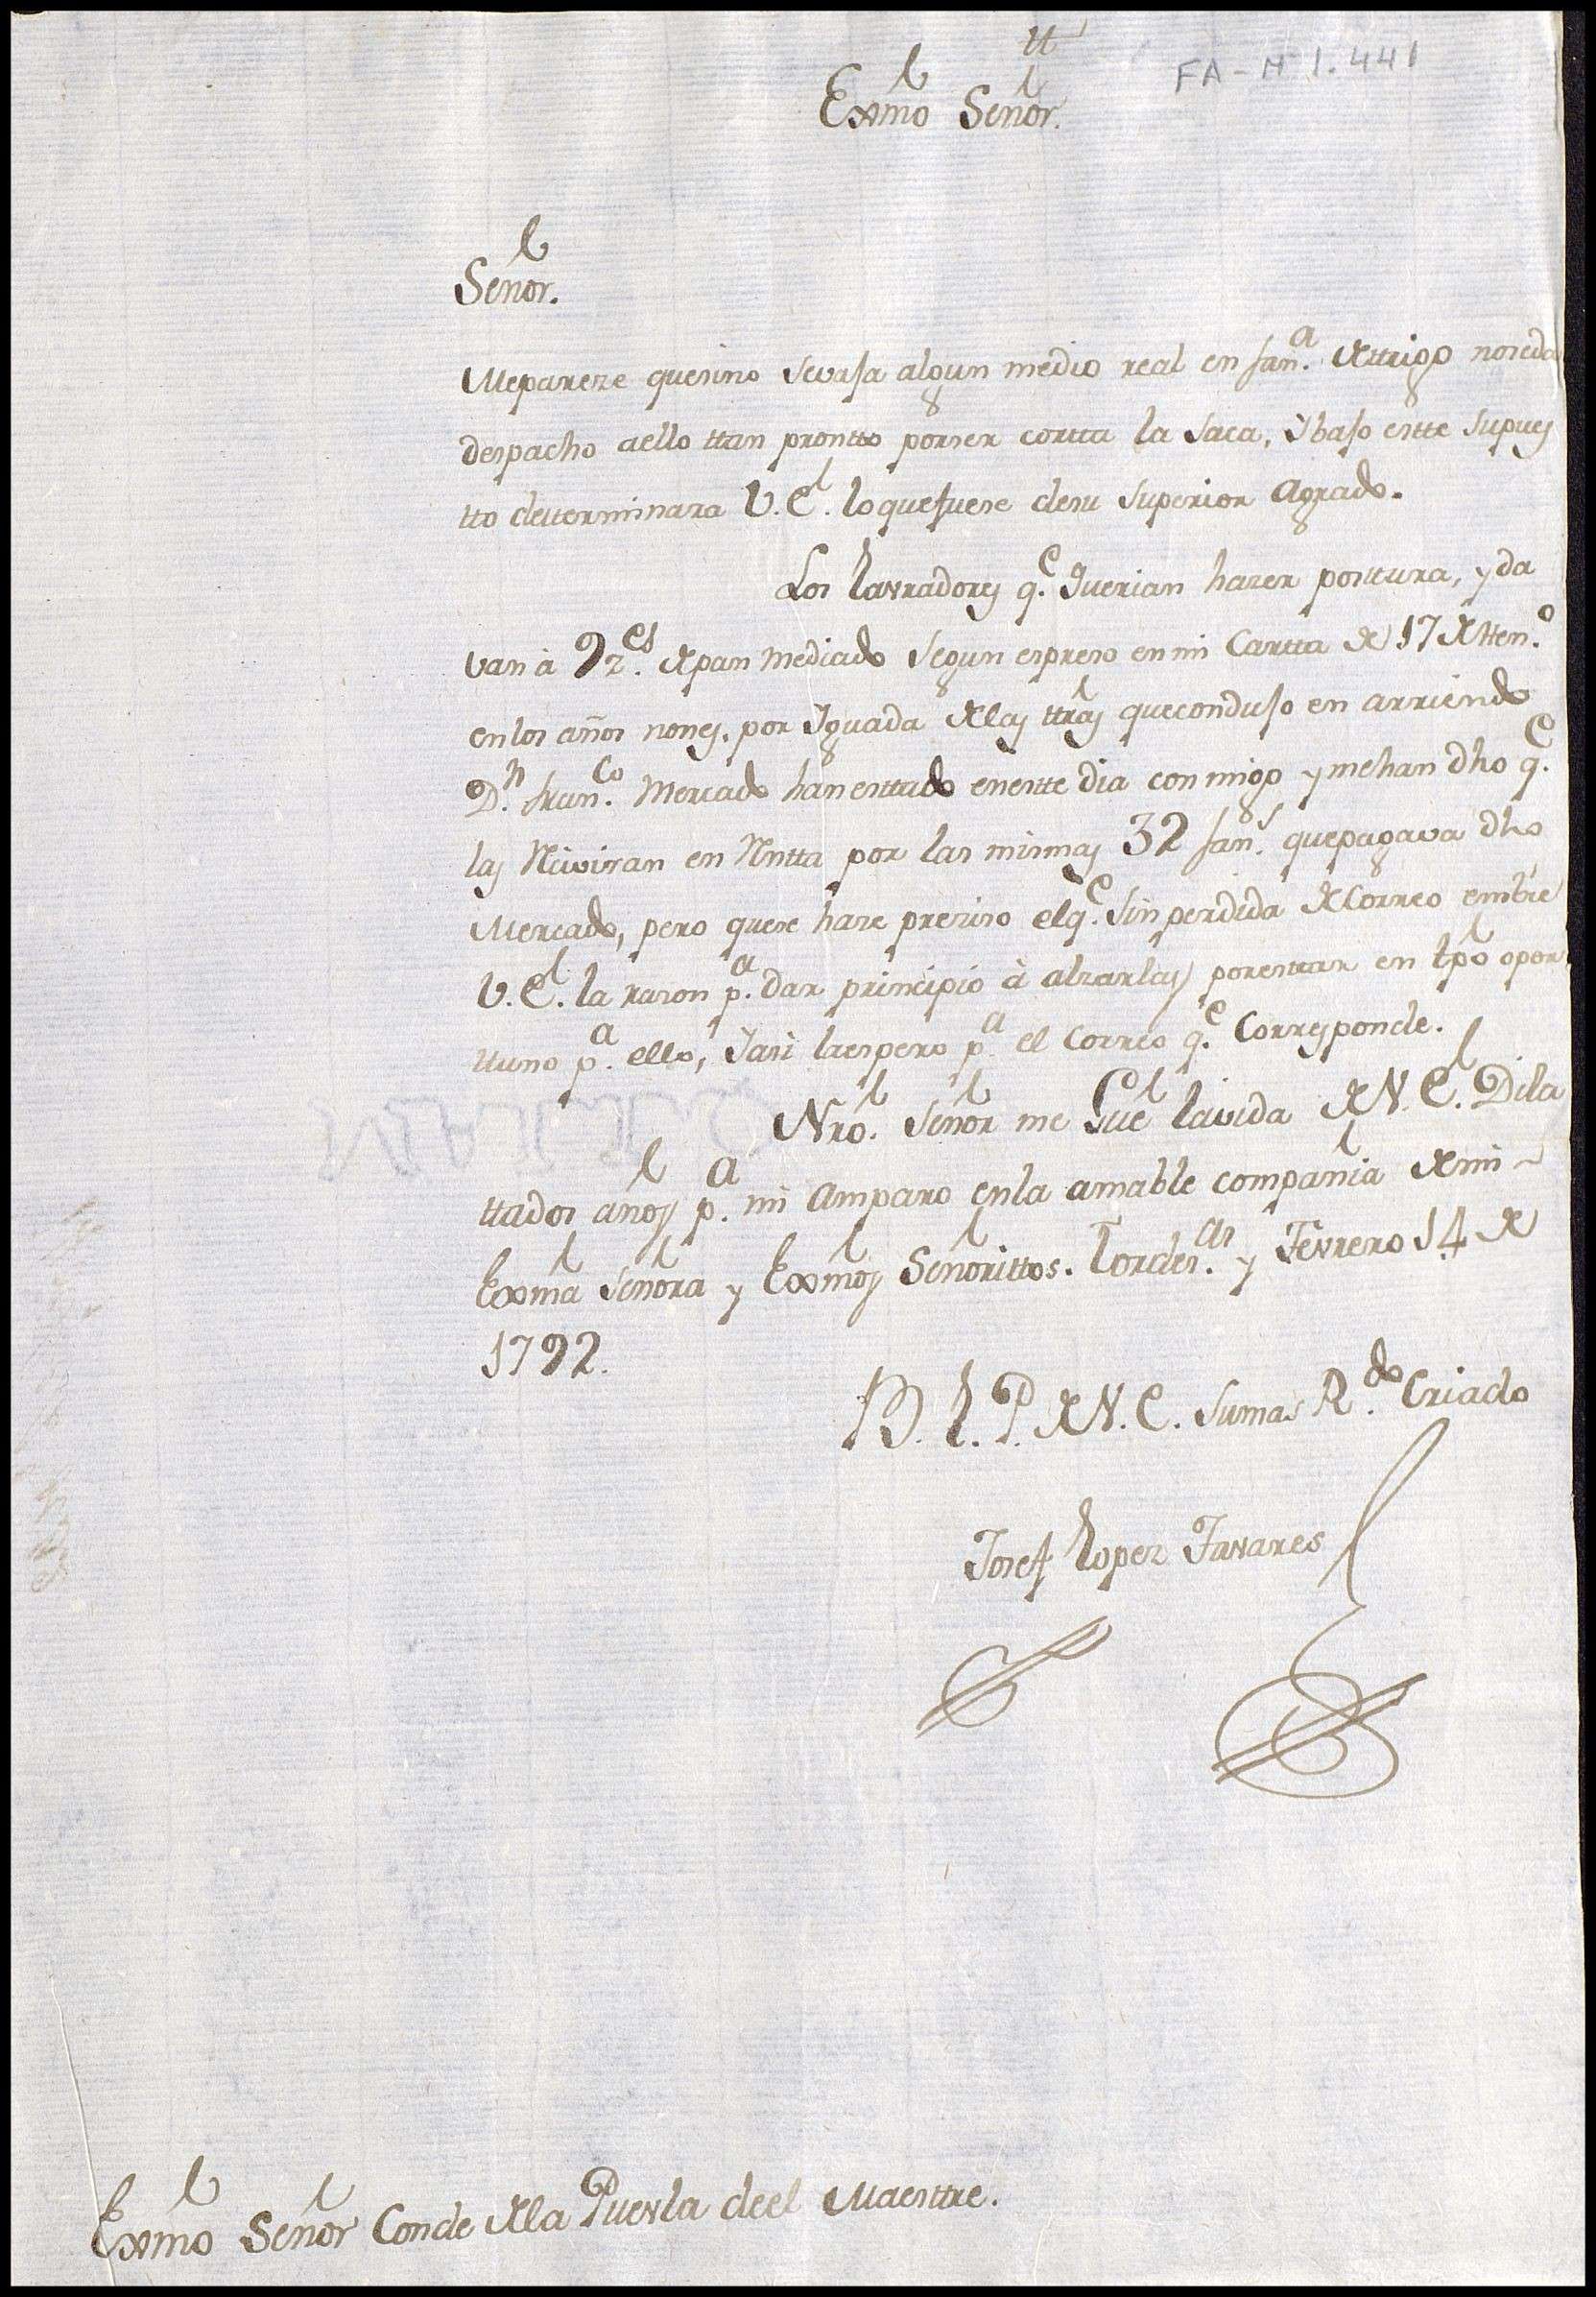 tt
FA-M 1.441
Exmo Señor.
Señor.
Mepareze quesino sevaja algun medio real en fan.ª de ttrigo noseda
despacho aello ttan prontto porser cortta la saca, Ybajo estte supues
tto detterminara V.E. loquefuese desu superior Agrado.
Los Lavradores q.e Querian hazer posttura, y da
van à 92.es de pan mediado segun espreso enmi Cartta de 17 de
enlos años nones, por Yguada de las ttrãs quecondujo en arriendo
D.n fran.co Mercado han esttado enestte dia conmigo y mehan dho q.e
las Reciviran en Rentta por las mismas 32 fan.s quepagava dho
Mercado, pero quese haze preziso elq.e sin perdida de Correo embie
V.E. la razon p.a dar principio à alzarlas porestar en tpõ opor
ttuno p.a ello, Yasi laespero p.a el Correo q.e Corresponde.
Nrõ. Señor me Gue la vida de V.E. Dila
ttados años p.a mi Amparo enla amable compañia de mi
Exma Señora y Exmos Señorittos. Tordes.as y Fevrero 14 de
1792.
B. L. P. de V. E. sumas R.do Criado
Josef Lopez Tavares
Exmo Señor Conde de la Puevla deel Maesttre.